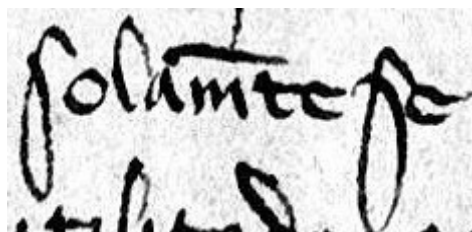 solam̄te se